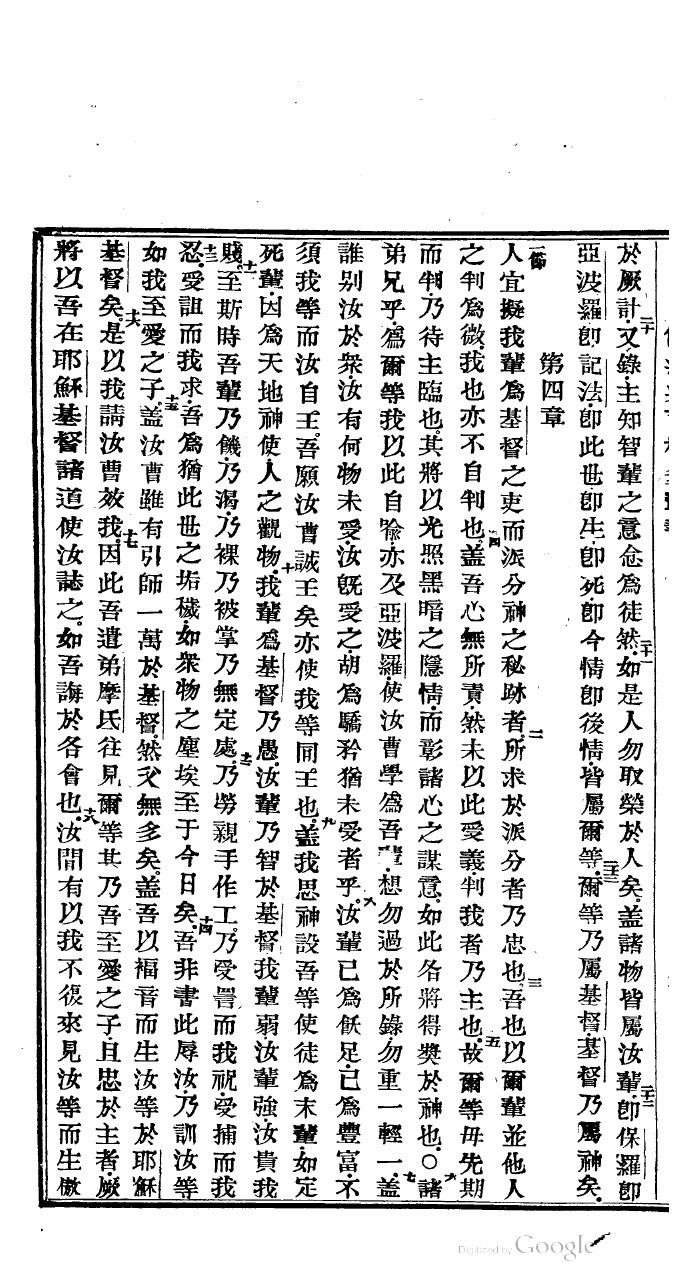 於厥計又錄主知智輩之意念爲徒然如是人勿取榮於人矣蓋諸物皆屬汝輩卽保羅卽
二十
二十一
二十二
亞波羅卽記法卽此世卽生卽死卽今情卽後情皆屬爾等爾等乃屬基督基督乃屬神矣
二十三
第四章
一節
人宜擬我輩爲基督之吏而派分神之秘跡者所求於派分者乃忠也吾也以爾輩並他人
二
三
之判爲微我也亦不自判也蓋吾心無所責然未以此受義判我者乃主也故爾等毋先期
四
五
而判乃待主臨也其將以光照黑暗之隱情而彰諸心之謀意如此各將得獎於神也○諸
六
弟兄乎爲爾等我以此自喩亦及亞波羅使汝曹學爲吾輩想勿過於所錄勿重一輕一蓋
七
誰別汝於衆汝有何物未受汝旣受之胡爲驕矜猶未受者乎汝輩已爲飫足已爲豐富不
八
須我等而汝自王吾願汝曹誠王矣亦使我等同王也蓋我思神設吾等使徒爲末輩如定
九
死輩因爲天地神使人之觀物我輩爲基督乃愚汝輩乃智於基督我輩弱汝輩強汝貴我
十
賤至斯時吾輩乃饑乃渴乃裸乃被掌乃無定處乃勞親手作工乃受詈而我祝受捕而我
十一
十二
忍受詛而我求吾爲猶此世之垢穢如衆物之塵埃至于今日矣吾非書此辱汝乃訓汝等
十三
十四
如我至愛之子蓋汝曹雖有引師一萬於基督然父無多矣蓋吾以福音而生汝等於耶穌
十五
基督矣是以我請汝曹效我因此吾遣弟摩氏往見爾等其乃吾至愛之子且忠於主者厥
十六
十七
將以吾在耶穌基督諸道使汝誌之如吾誨於各會也汝間有以我不復來見汝等而生傲
十八
Digitized by Google